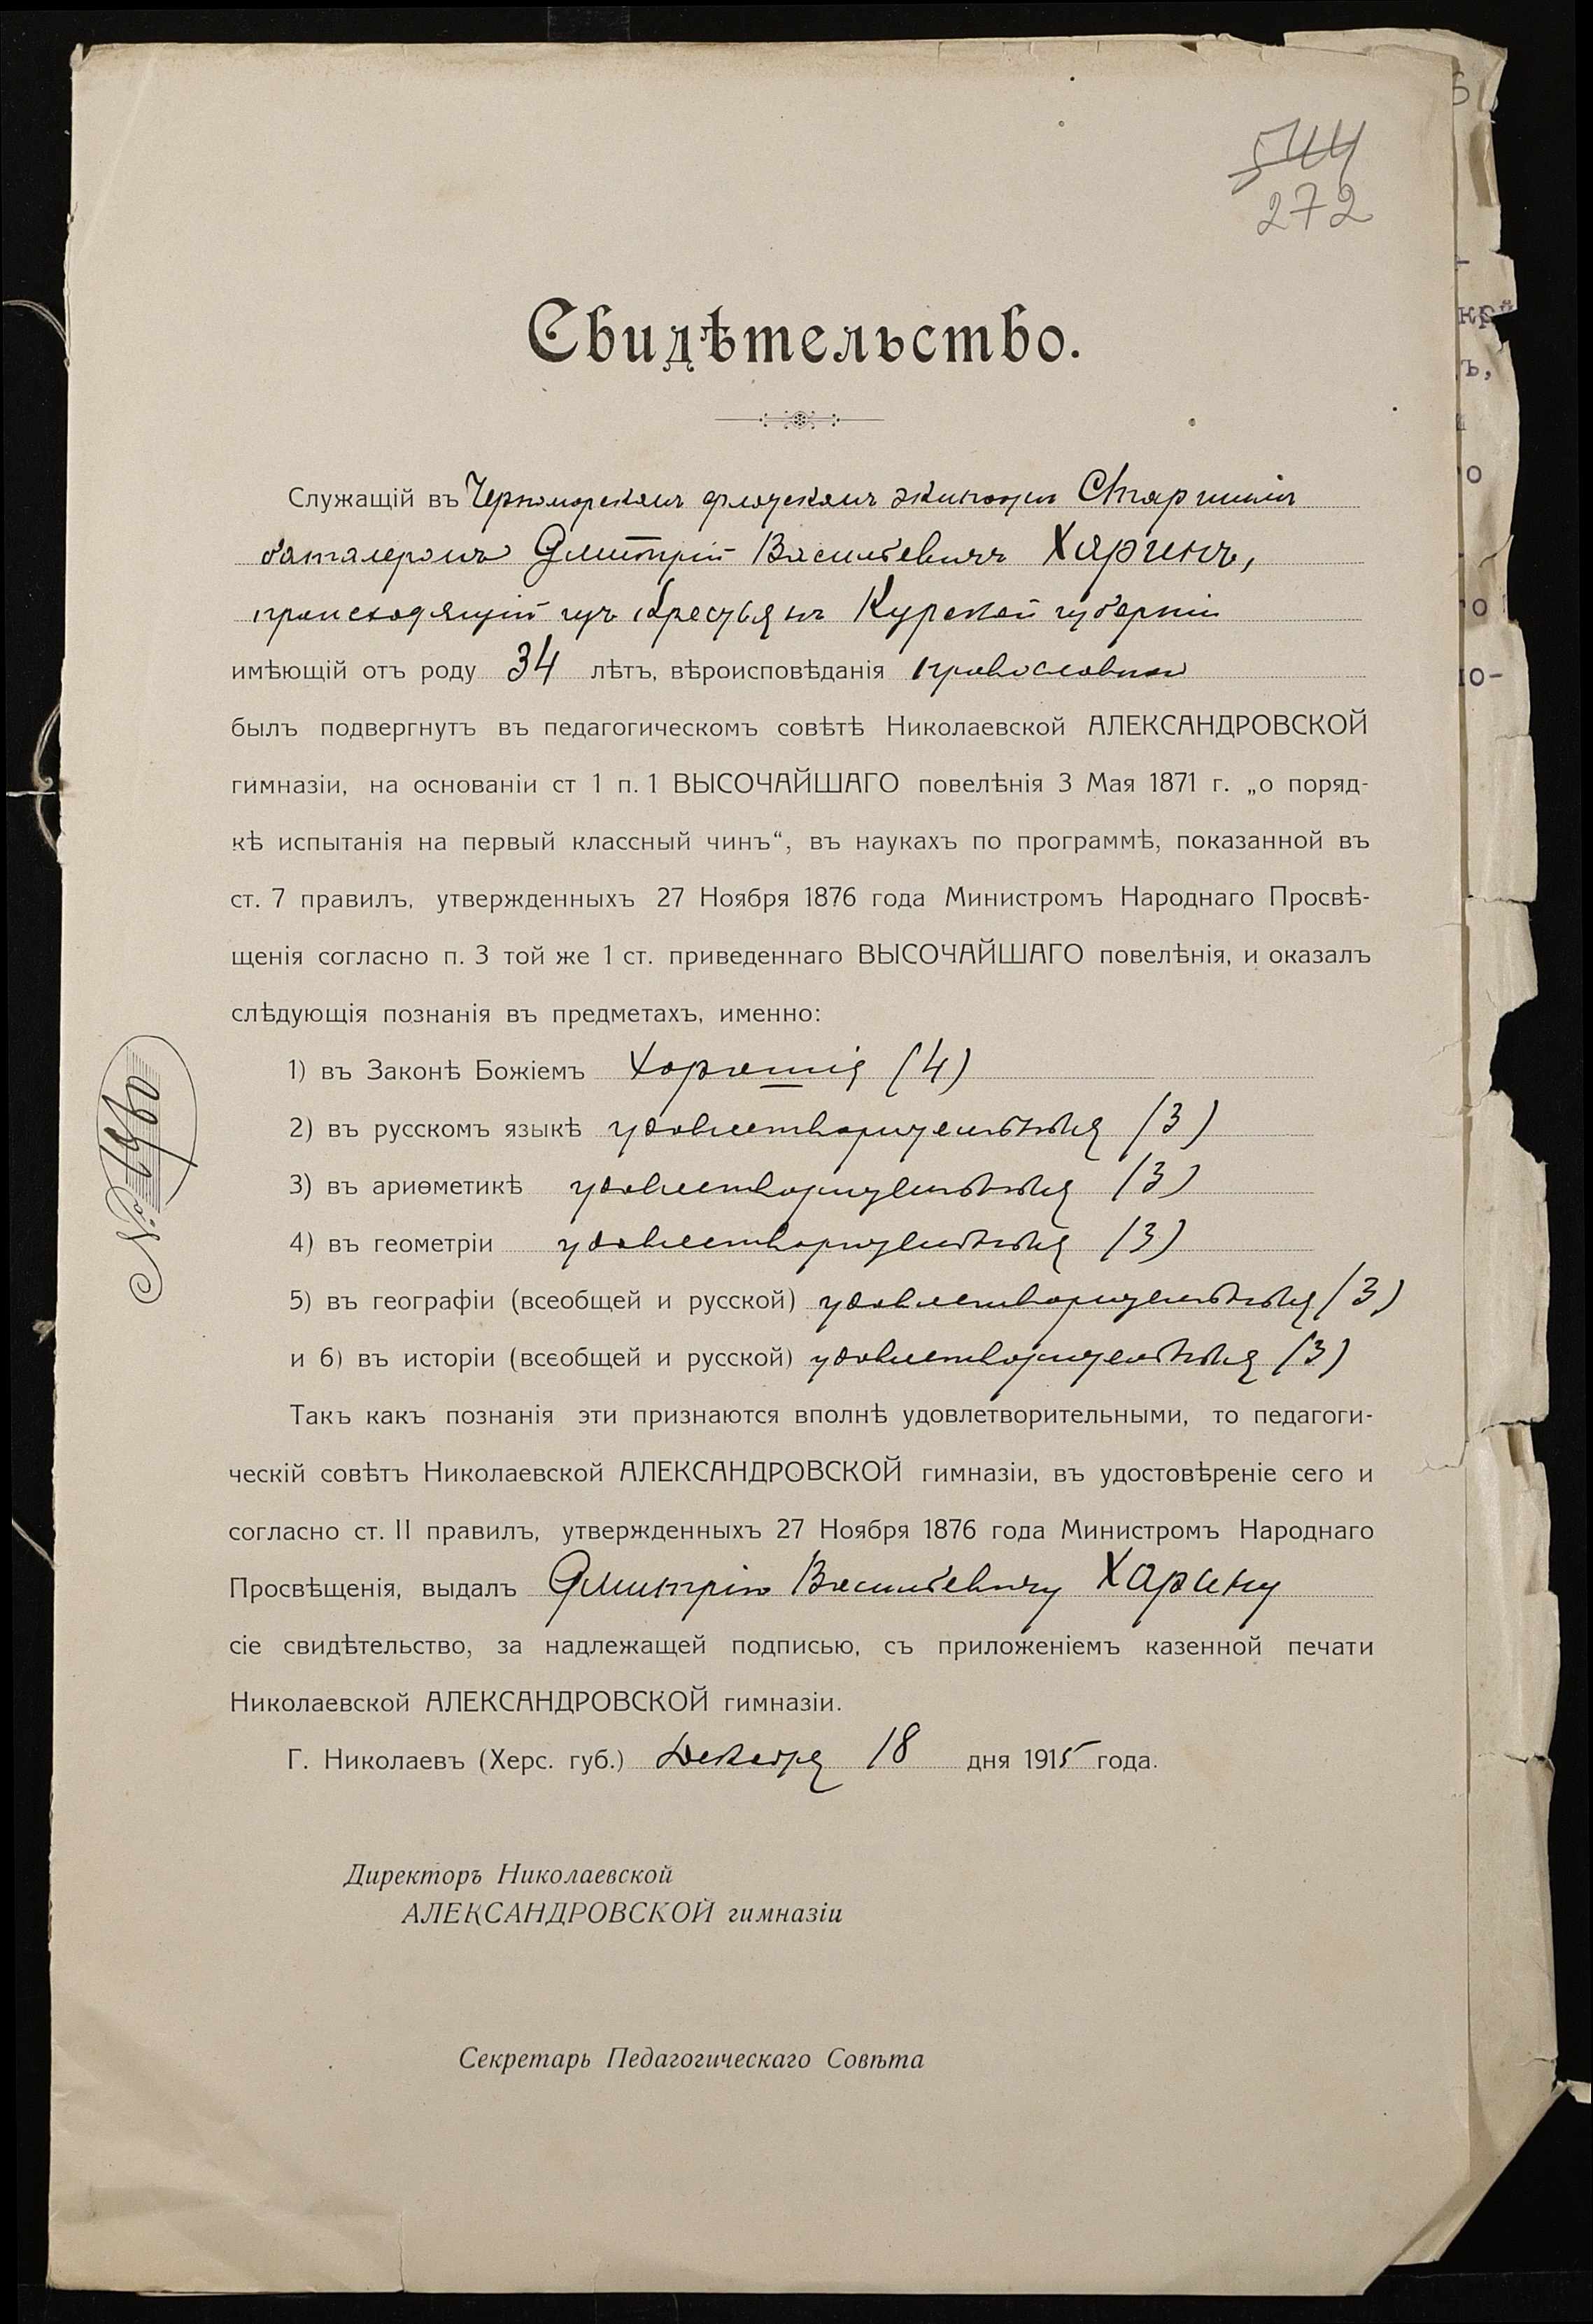 544
272
Свидѣтельство.
Служащій въ Черноморскомъ флотскомъ экипажѣ Старшимъ
баталеромъ Дмитрій Васильевичъ Харинъ,
происходящій изъ крестьянъ Курской губерніи
имѣющій отъ роду 34 лѣтъ, вѣроисповѣданія православнаго
былъ подвергнутъ въ педагогическомъ совѣтѣ Николаевской АЛЕКСАНДРОВСКОЙ
гимназіи, на основаніи ст 1 п. 1 ВЫСОЧАЙШАГО повелѣнія 3 Мая 1871 г. „о поряд-
кѣ испытанія на первый классный чинъ“, въ наукахъ по программѣ, показанной въ
ст. 7 правилъ, утвержденныхъ 27 Ноября 1876 года Министромъ Народнаго Просвѣ-
щенія согласно п. 3 той же 1 ст. приведеннаго ВЫСОЧАЙШАГО повелѣнія, и оказалъ
слѣдующія познанія въ предметахъ, именно:
1) въ Законѣ Божіемъ Хорошія (4)
2) въ русскомъ языкѣ удовлетворительныя (3)
3) въ ариѳметикѣ удовлетворительныя (3)
4) въ геометріи удовлетворительныя (3)
5) въ географіи (всеобщей и русской) удовлетворительныя (3)
и 6) въ исторіи (всеобщей и русской) удовлетворительныя (3)
Такъ какъ познанія эти признаются вполнѣ удовлетворительными, то педагоги-
ческій совѣтъ Николаевской АЛЕКСАНДРОВСКОЙ гимназіи, въ удостовѣреніе сего и
согласно ст. II правилъ, утвержденныхъ 27 Ноября 1876 года Министромъ Народнаго
Просвѣщенія, выдалъ Дмитрію Васильевичу Харину
сіе свидѣтельство, за надлежащей подписью, съ приложеніемъ казенной печати
Николаевской АЛЕКСАНДРОВСКОЙ гимназіи.
Г. Николаевъ (Херс. губ.) Декабря 18 дня 1915 года.
Директоръ Николаевской
АЛЕКСАНДРОВСКОЙ гимназіи
Секретарь Педагогическаго Совѣта
№